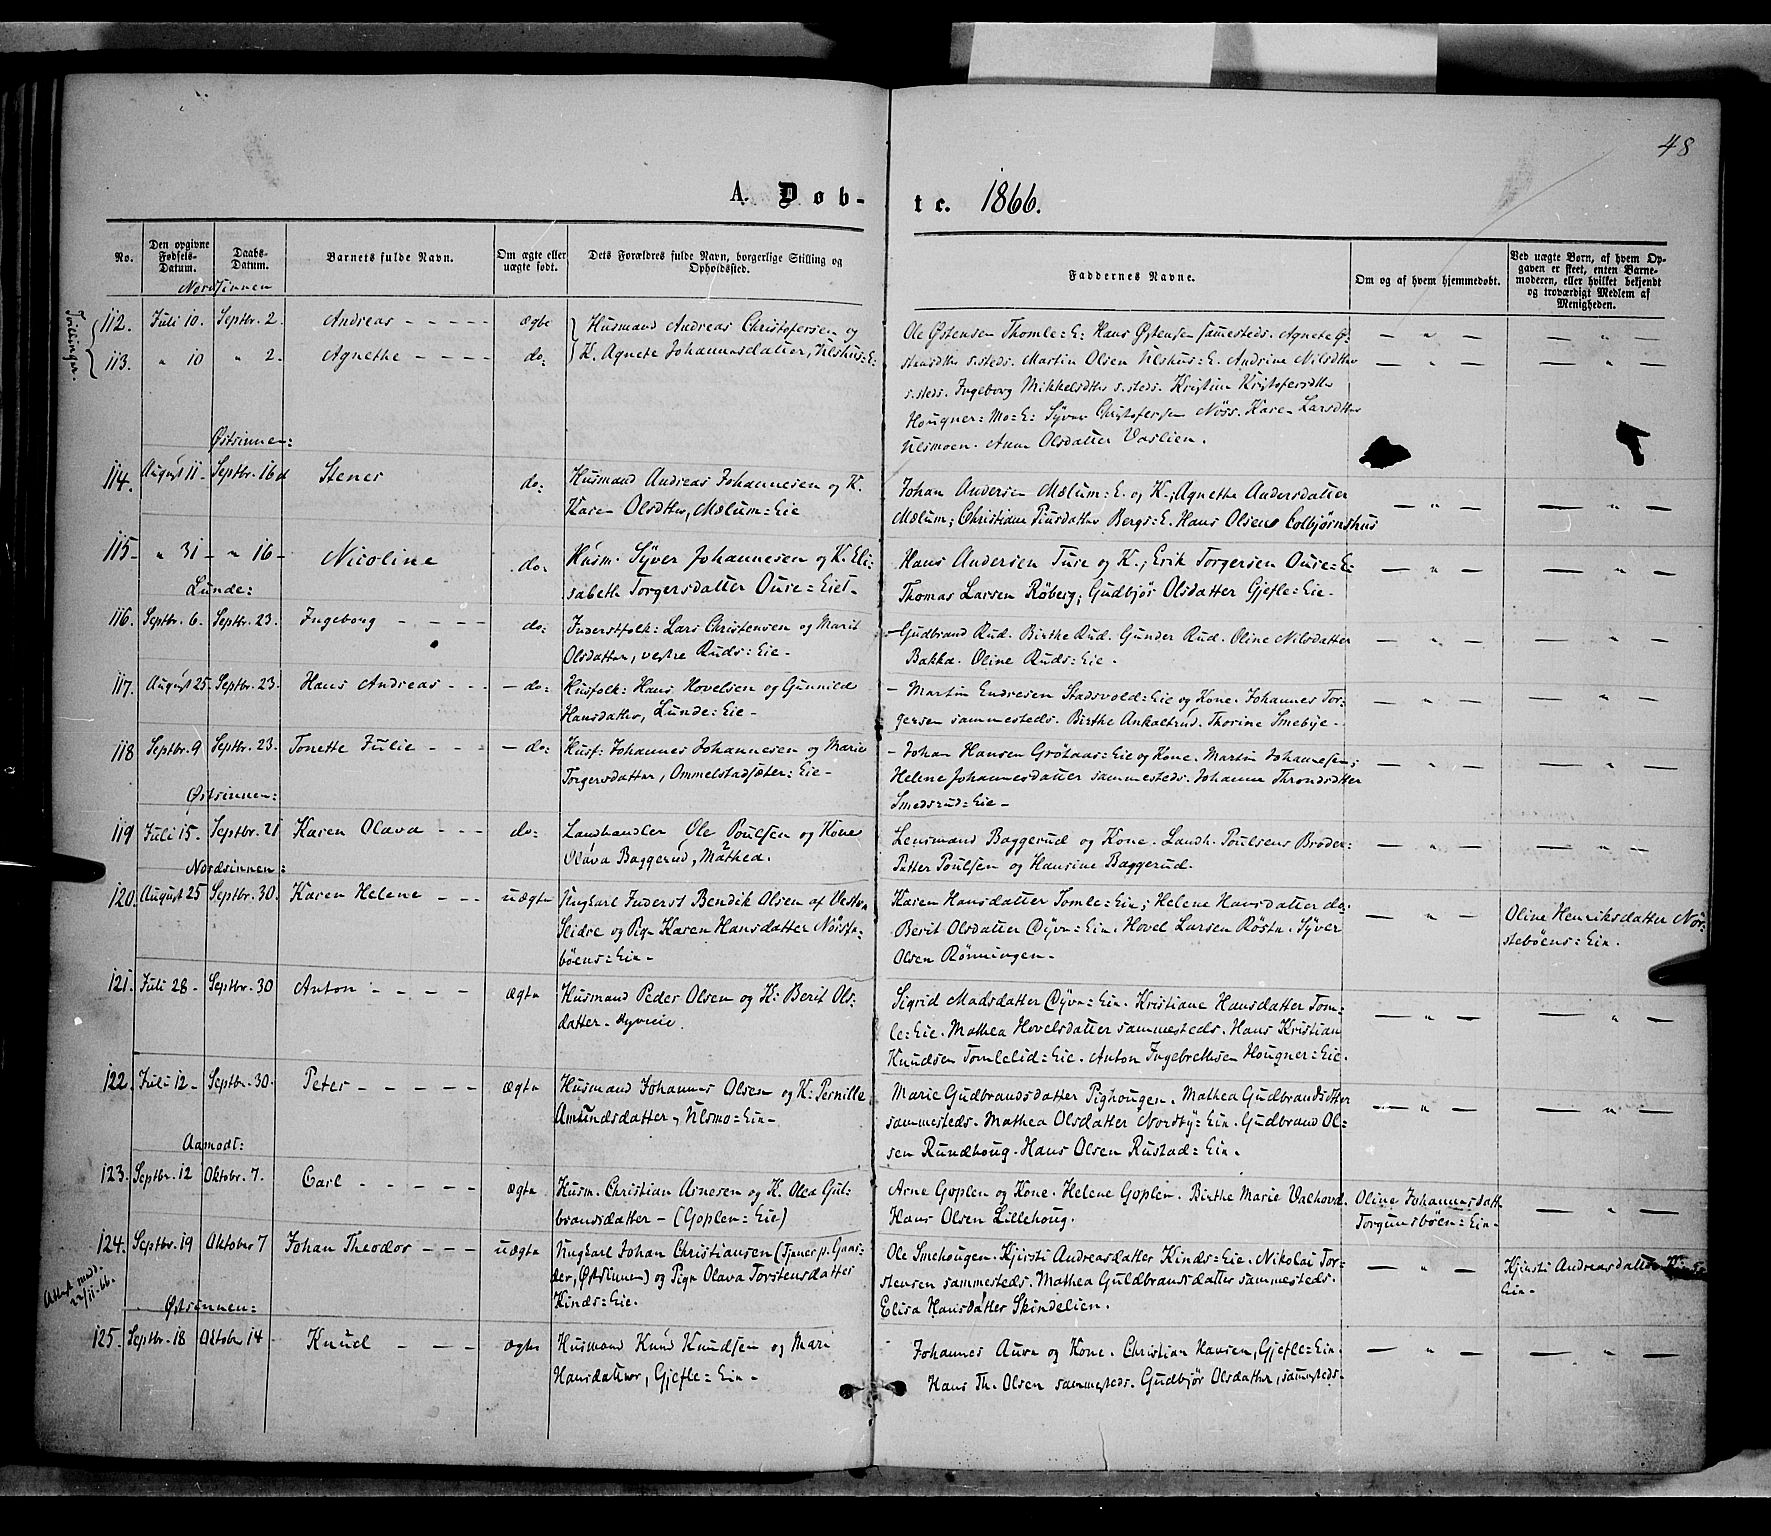 48
A. Døb-
te. 1866.
No.
Den opgivne Fødsels-Datum.
Daabs-Datum.
Barnets fulde Navn.
Om ægte eller uægte født.
Dets Forældres fulde Navn, borgerlige Stilling og Opholdssted.
Faddernes Navne.
Om og af hvem hjemmedøbt.
Ved uægte Børn, af hvem Opgaven er skeet, enten Barnemoderen, eller hvilket bekjendt og troværdigt Medlem af Menigheden.
Nordsinnen
Tvillinger.
112. Juli 10. Septbr. 2. Andreas - - - - ægte Husmand Andreas Christofersen og
113. " 10 " 2. Agnethe - - - - do: K. Agnete Johannesdatter, Ulshus=E.
Ole Østensen Thomle=E: Hans Østensen sammesteds. Agnete Ø-
stensdtter s.steds. Martin Olsen Ulshus=E. Andrine Nilsdtter
s.steds. Ingeborg Mikkelsdtter s.steds. Kristine Kristofersdtter
Hougner=Mo=E: Syver Christofersen Nöss. Karen Larsdtter
Ulsmoen. Anne Olsdatter Vaslien.
Østsinnen:
114. August 11 - Septbr. 16 Stener do: Husmand Andreas Johannesen og K.
Karen Olsdtter, Mælum=Eie
Johan Andersen Mælum=E. og K.; Agnethe Andersdatter
Mælum; Christiane Piusdatter Bergs=E. Hans Olsens Colbjørnshus
115- " 31 - " 16 - Nicoline do: Husm. Syver Johannesen og K. Eli=
sabeth Torgersdatter Oure=Eiet-
Hans Andersen Ture og K., Erik Torgersen Oure=E=
Thomas Larsen Røberg; Gudbjør Olsdatter Gjefle=Eie-
Lunde:
116. Septbr. 6. Septbr. 23. Ingeborg - - - - do: Inderstfolk: Lars Christensen og Marit
Olsdatter, vestre Ruds=Eie-
Gudbrand Rud. Birthe Rud. Gunder Rud. Oline Nilsdatter
Bakka. Oline Ruds=Eie.
117. August 25. Septbr. 23. Hans Andreas - - - do: Husfolk: Hans Hovelsen og Gunnild
Hansdatter, Lunde=Eie-
- Martin Endresen Stadsvold=Eie og Kone. Johannes Tor=
gersen sammesteds. Birthe Ankaltrud. Thorine Smebye-
118 Septbr. 9 Septbr. 23. Tonette Julie - - - do: Husf: Johannes Johannesen og Marie
Torgersdatter, Ommelstadsæter=Eie-
- Johan Hansen Gröhaas=Eie og Kone. Martin Johannesen;
Helene Johannesdatter sammesteds. Johanne Throndsdatter
Smedsrud=Eie-
Østsinnen:
119 Juli 15. Septbr. 21 Karen Olava - - - do: Landhandler Ole Poulsen og Kone
Olava Baggerud, Mathea.
Lensmand Baggerud og Kone. Landh. Poulsens Broder=
Petter Poulsen og Hansine Baggerud.
Nordsinnen:
120. August 25 Septbr. 30. Karen Helene - - uægte Ungkarl Inderst Bendik Olsen af Vestre
Slidre og Pige Karen Hansdatter Nörste=
böens=Eie-
Karen Hansdatter Tomle=Eie; Helene Hansdatter do:
Berit Olsdatter Dyve=Eie. Hovel Larsen Röste. Syver
Olsen Rönningen.
Oline Henriksdatter Nör=
steböens=Eie.
121. Juli 28 - Septbr. 30 Anton - - - - ægte Husmand Peder Olsen og K: Berit Ols=
datter- Dyveeie.
Sigrid Madsdatter Dyve=Eie. Kristiane Hansdatter Tom=
le=Eie. Mathea Hovelsdatter sammesteds. Hans Kristian
Knudsen Tomlelid=Eie. Anton Ingebrethsen Hougner=Eie.
122. Juli 12 - Septbr. 30. Peter - - - - - ægte Husmand Johannes Olsen og K: Pernille
Amundsdatter, Ulsmo=Eie-
Marie Gudbrandsdatter Pighougen. Mathea Gudbrandsdtter
sammesteds. Mathea Olsdatter Nordby=Eie. Gudbrand Ol=
sen Rundhoug. Hans Olsen Rustad=Eie.
Aamodt:
123. Septbr. 12 Oktobr. 7. Carl - - - - - ægte Husm. Christian Arnesen og K. Olea Gul=
bransdatter - (Goplen=Eie)
Arne Goplen og Kone. Helene Goplen. Birthe Marie Valhovd.
Hans Olsen Lillehoug.
Oline Johannesdatt.
Torgunsböen=Eie.
124. Septbr. 19 Oktober 7 Johan Theodor - - - uægte Ungkarl Johan Christiansen (Tjener p. Gaar=
der, Østsinnen) og Pige Olava Torstensdatter
Kinds=Eie.
Ole Smehougen. Kjersti Andreasdatter Kinds=Eie. Nikolai Tor=
stensen sammesteds. Mathea Guldbransdatter sammesteds.
Elisa Hansdatter Skindelien.
Kjersti Andreasdatter
Eie-
Attest medd.
22/11-66.
Østsinnen:
125. Septbr. 18 Oktober 14 - Knud - - - ægte Husmand Knud Knudsen og Mari
Hansdatter, Gjefle=Eie-
Johannes Aure og Kone. Christian Hansen, Gjefle=Eie-
Hans Th. Olsen sammesteds. Gudbjør Olsdatter, sammesteds-